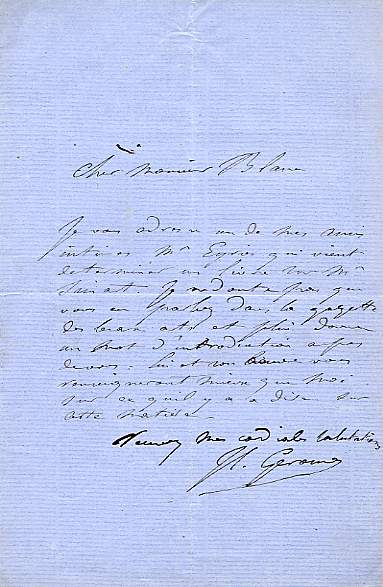 Cher Monsieur Blanc
Je vous adresse un de mes amis
intimes Mr Eyriès qui vient
de terminer un livre sur Mr
Je ne doute pas que
vous en parliez dans la gazette
des beaux arts et plui donne
un mot d'introduction auprès
de vous. Lui et son livre vous
renseigneront mieux que moi
sur ce qu'il y a à dire sur
cette matière.
Recevez mes cordiales salutations
JL. Gerome